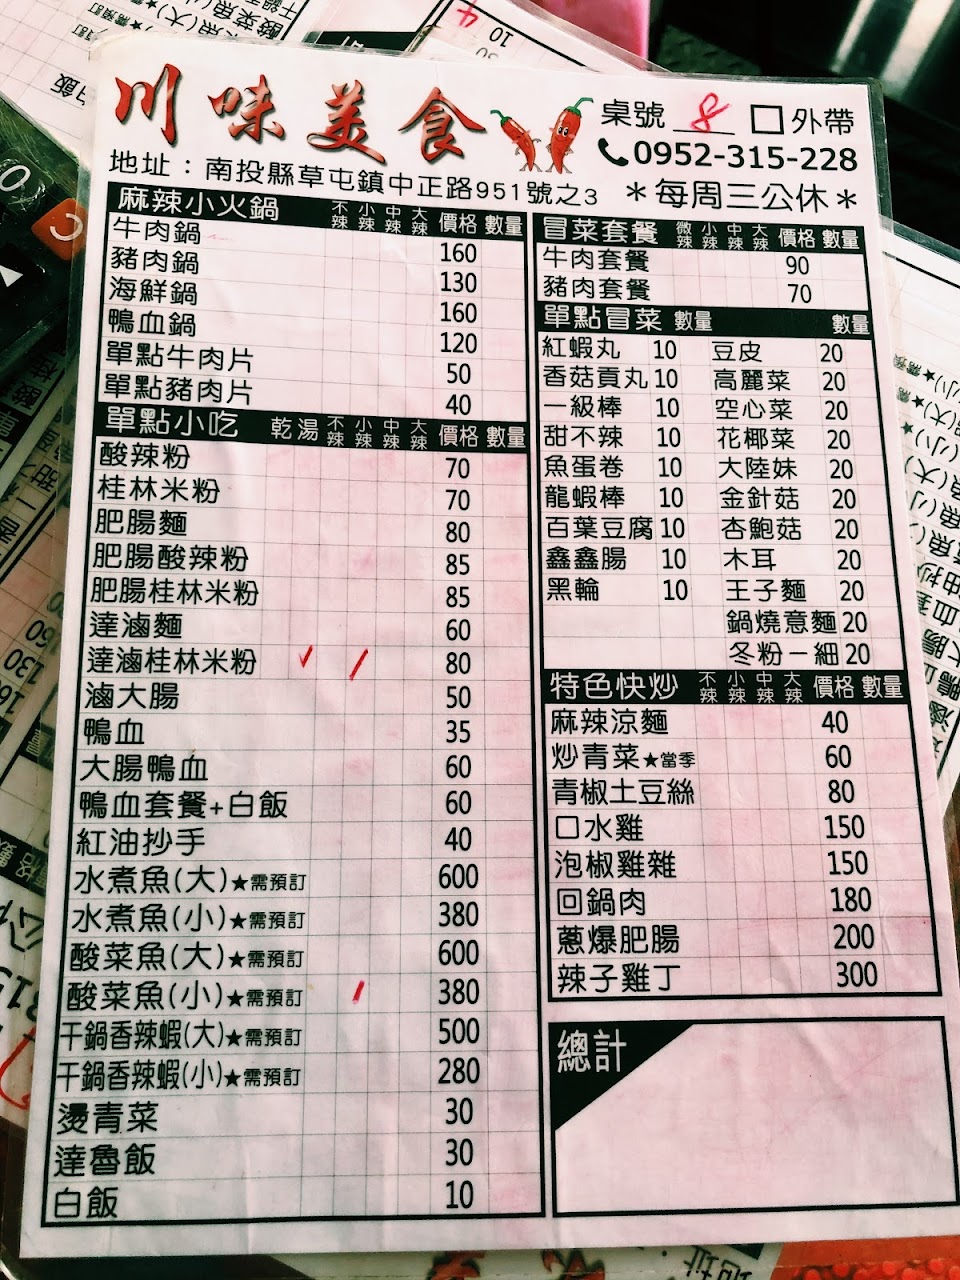 川味美食
桌號 8 □外帶
0952-315-228
地址：南投縣草屯鎮中正路951號之3
＊每周三公休＊
麻辣小火鍋 不辣 小辣 中辣 大辣 價格 數量
牛肉鍋 160
豬肉鍋 130
海鮮鍋 160
鴨血鍋 120
單點牛肉片 50
單點豬肉片 40
單點小吃 乾 湯 不辣 小辣 中辣 大辣 價格 數量
酸辣粉 70
桂林米粉 70
肥腸麵 80
肥腸酸辣粉 85
肥腸桂林米粉 85
達滷麵 60
達滷桂林米粉 ✓ / 80
滷大腸 50
鴨血 35
大腸鴨血 60
鴨血套餐+白飯 60
紅油抄手 40
水煮魚(大)★需預訂 600
水煮魚(小)★需預訂 380
酸菜魚(大)★需預訂 600
酸菜魚(小)★需預訂 / 380
干鍋香辣蝦(大)★需預訂 500
干鍋香辣蝦(小)★需預訂 280
燙青菜 30
達魯飯 30
白飯 10
冒菜套餐 微辣 小辣 中辣 大辣 價格 數量
牛肉套餐 90
豬肉套餐 70
單點冒菜 數量 數量
紅蝦丸 10 豆皮 20
香菇貢丸 10 高麗菜 20
一級棒 10 空心菜 20
甜不辣 10 花椰菜 20
魚蛋卷 10 大陸妹 20
龍蝦棒 10 金針菇 20
百葉豆腐 10 杏鮑菇 20
鑫鑫腸 10 木耳 20
黑輪 10 王子麵 20
鍋燒意麵 20
冬粉一細 20
特色快炒 不辣 小辣 中辣 大辣 價格 數量
麻辣涼麵 40
炒青菜★當季 60
青椒土豆絲 80
口水雞 150
泡椒雞雜 150
回鍋肉 180
蔥爆肥腸 200
辣子雞丁 300
總計